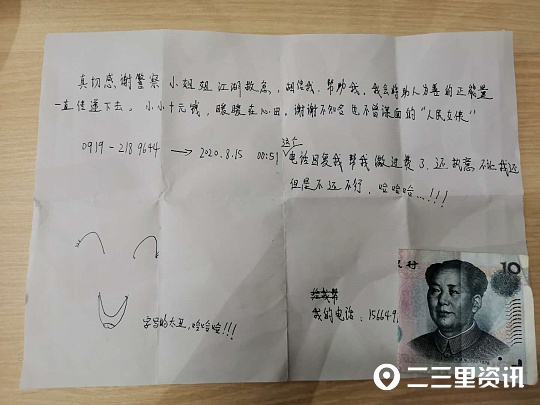 真切感谢警察小姐姐江湖救急，相信我，帮助我，我会将助人为善的正能量
一直传递下去。小小十元钱，暖暖在心田，谢谢不知名也不曾谋面的“人民女侠”
0919-2189644 → 2020.8.15 00:51 这个
电话回复我帮我缴过费了，还执意不让我还
但是不还不行，哈哈哈…!!!
字写的太丑，哈哈哈!!!
我的电话：156649
10
二三里资讯